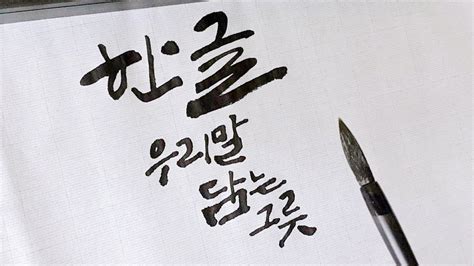 한글
우리말
담는
그릇